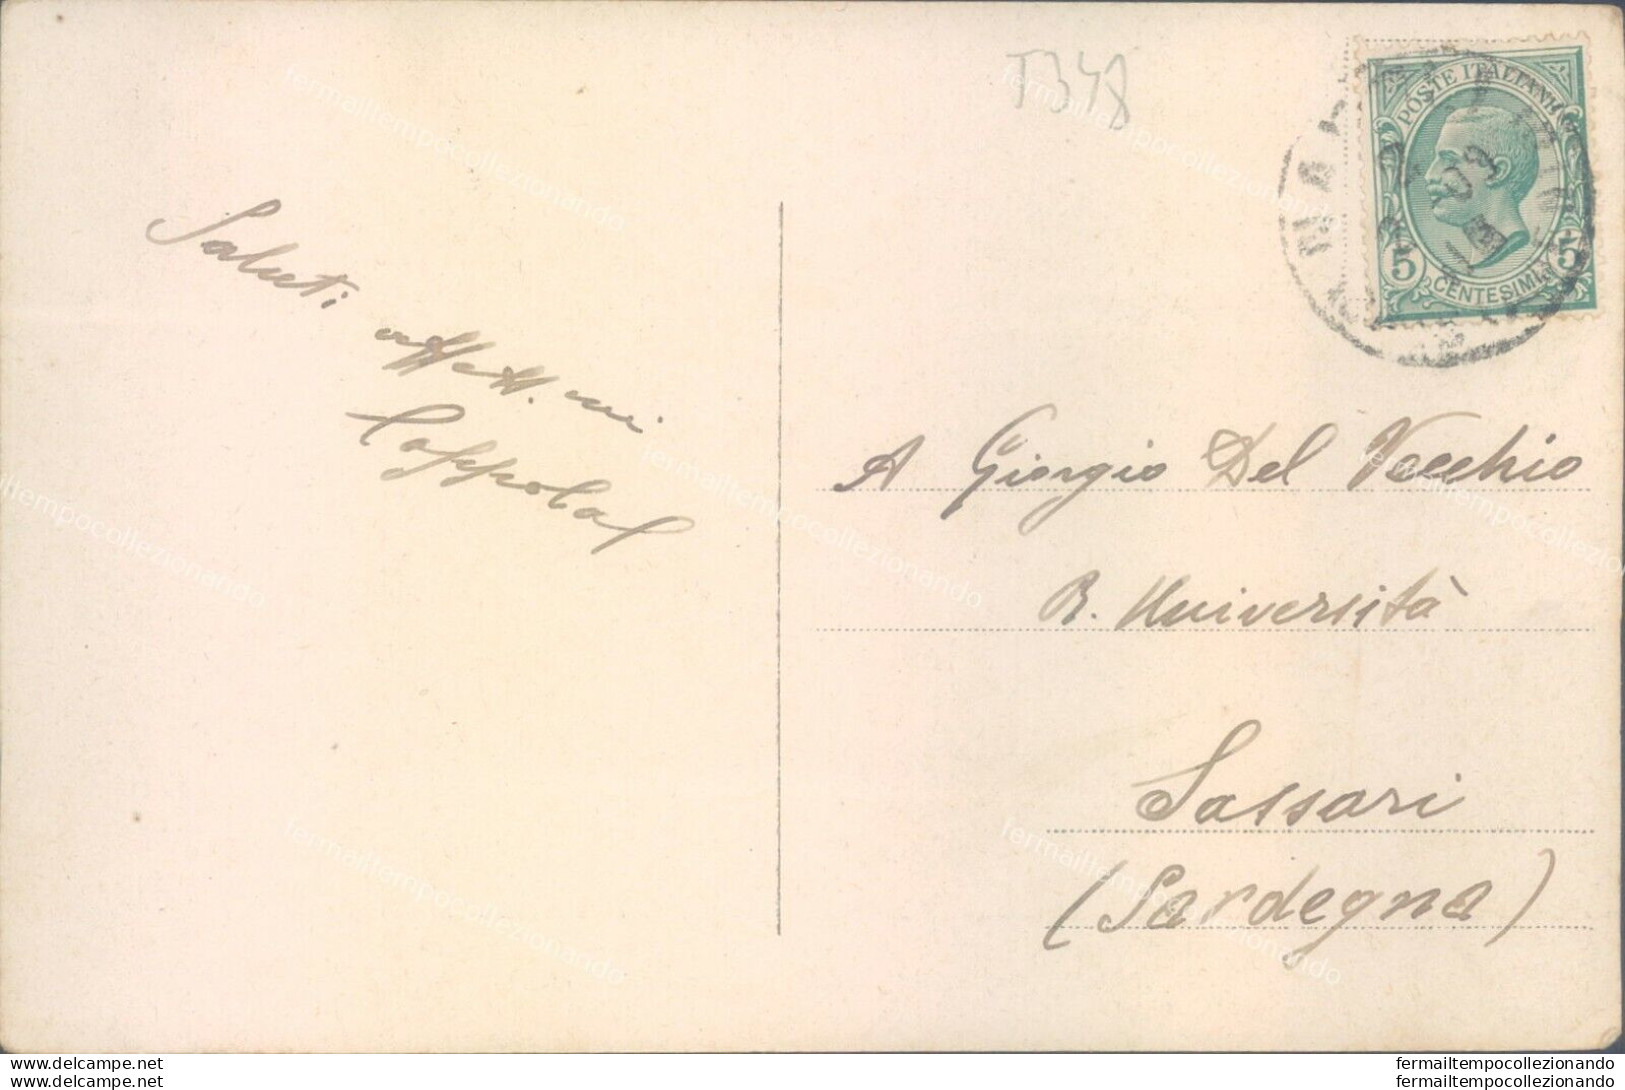 T348
POSTE ITALIANE
5 5
CENTESIMI
Saluti
affett.mi
A Giorgio Del Vecchio
R. Università
Sassari
(Sardegna)
fermailtempocollezionando
fermailtempocollezionando
delcampe.net
delcampe.net
fermailtempocollezionando
fermailtempocollezionando